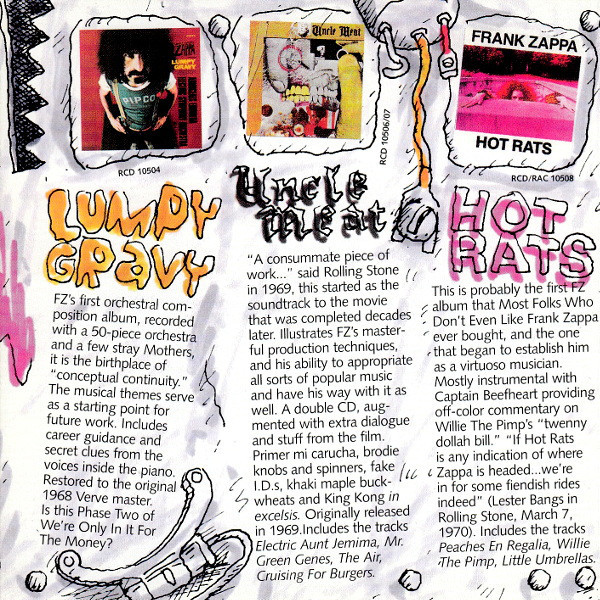 ZAPPA
LUMPY
GRAVY
PIPCO
RCD 10504
LUMPY
GRAVY
FZ's first orchestral com-
position album, recorded
with a 50-piece orchestra
and a few stray Mothers,
it is the birthplace of
"conceptual continuity."
The musical themes serve
as a starting point for
future work. Includes
career guidance and
secret clues from the
voices inside the piano.
Restored to the original
1968 Verve master.
Is this Phase Two of
We're Only In It For
The Money?
Uncle Meat
RCD 10506/07
Uncle
meat
"A consummate piece of
work..." said Rolling Stone
in 1969, this started as the
soundtrack to the movie
that was completed decades
later. Illustrates FZ's master-
ful production techniques,
and his ability to appropriate
all sorts of popular music
and have his way with it as
well. A double CD, aug-
mented with extra dialogue
and stuff from the film.
Primer mi carucha, brodie
knobs and spinners, fake
I.D.s, khaki maple buck-
wheats and King Kong in
excelsis. Originally released
in 1969.Includes the tracks
Electric Aunt Jemima, Mr.
Green Genes, The Air,
Cruising For Burgers.
FRANK ZAPPA
HOT RATS
RCD/RAC 10508
HOT
RATS
This is probably the first FZ
album that Most Folks Who
Don't Even Like Frank Zappa
ever bought, and the one
that began to establish him
as a virtuoso musician.
Mostly instrumental with
Captain Beefheart providing
off-color commentary on
Willie The Pimp's "twenny
dollah bill." "If Hot Rats
is any indication of where
Zappa is headed...we're
in for some fiendish rides
indeed" (Lester Bangs in
Rolling Stone, March 7,
1970). Includes the tracks
Peaches En Regalia, Willie
The Pimp, Little Umbrellas.